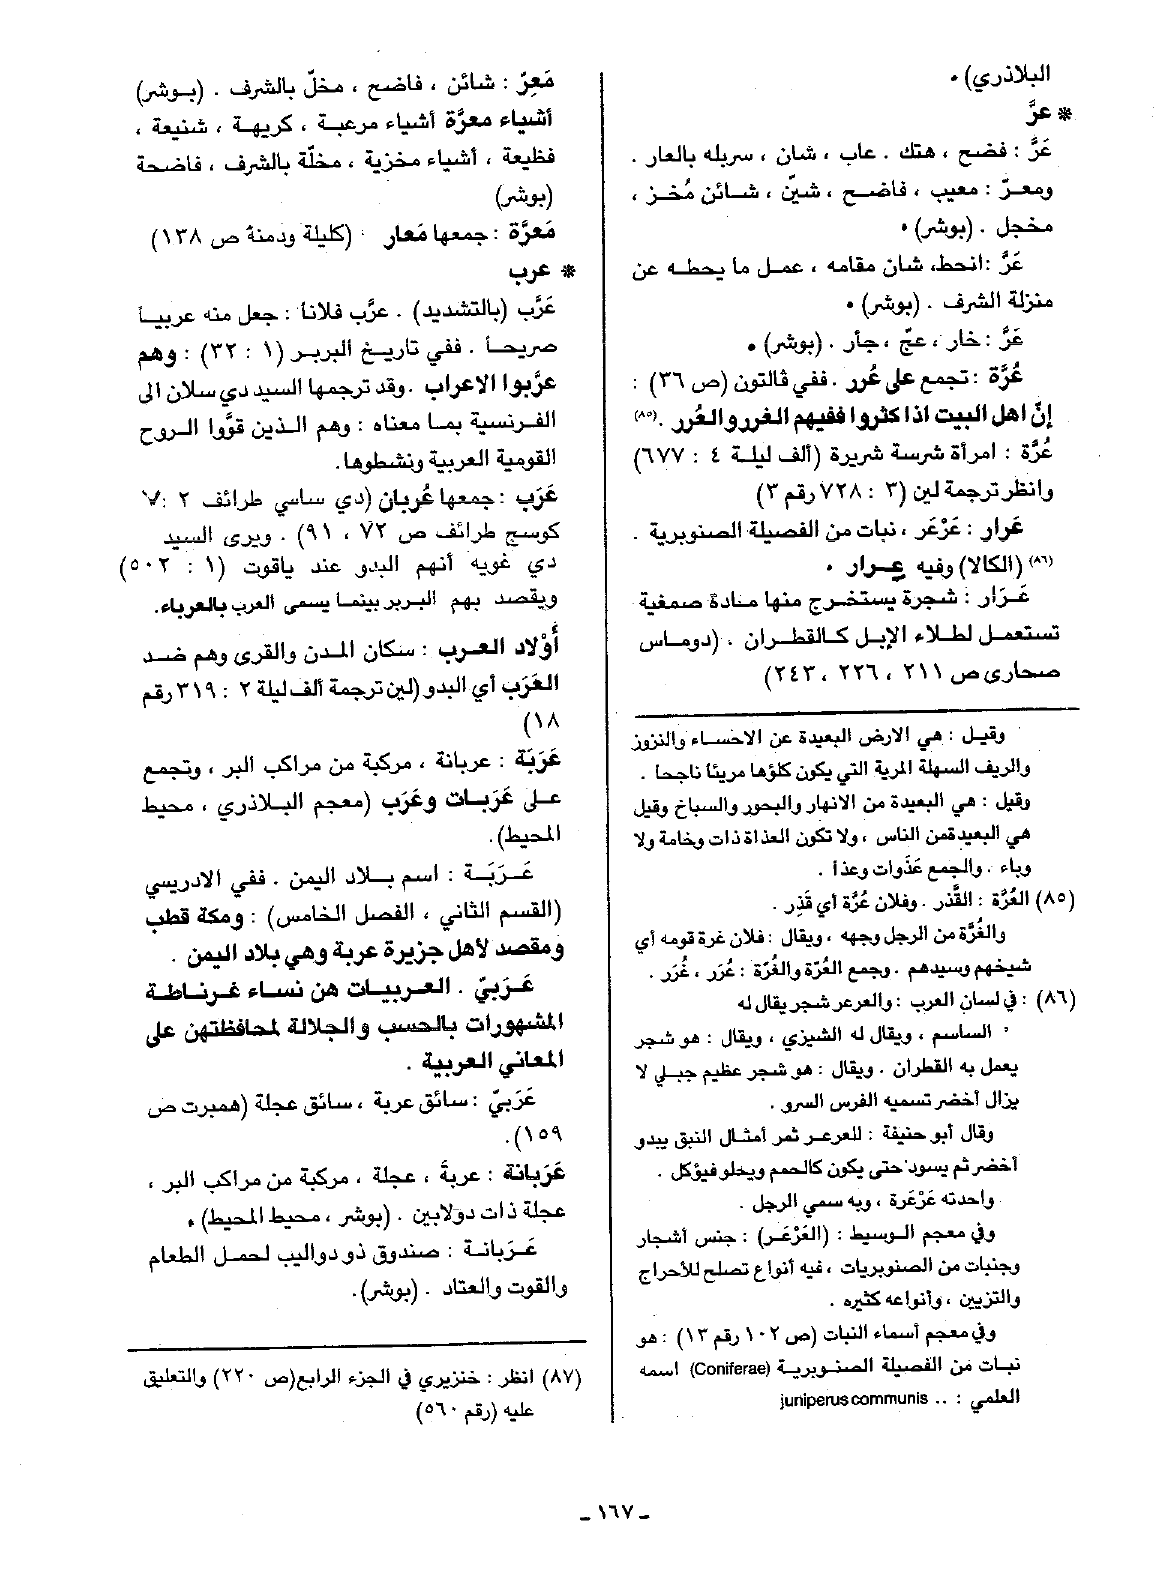 البلاذري) .
* عرَّ
عَرَّ : فضح ، هتك . عاب ، شان ، سربله بالعار .
ومعرّ : معيب ، فاضح ، شينّ ، شائن مُخز ،
مخجل . (بوشر) .
عَرَّ : انحط، شان مقامه ، عمل ما يحطه عن
منزلة الشرف . (بوشر) .
عَرَّ : خار ، عجّ ، جأر . (بوشر) .
عُرَّة : تجمع على عُرر . ففي ڤالتون (ص ٣٦) :
إنّ اهل البيت اذا كثروا ففيهم الغرر والعُرر .(٨٥)
عُرَّة : امرأة شرسة شريرة (ألف ليلة ٤ : ٦٧٧)
وانظر ترجمة لين (٣ : ٧٢٨ رقم ٣)
عَرار : عَرْعَر ، نبات من الفصيلة الصنوبرية .
(٨٦) (الكالا) وفيه عرار .
عَرَار : شجرة يستخرج منها مادة صمغية
تستعمل لطلاء الإبل كالقطران . (دوماس
صحارى ص ٢١١ ، ٢٢٦ ، ٢٤٣)
وقيل : هي الارض البعيدة عن الاحساء والنزوز
والريف السهلة المرية التي يكون كلؤها مريئا ناجحا .
وقيل : هي البعيدة من الانهار والبحور والسباخ وقيل
هي البعيدة من الناس ، ولا تكون العذاة ذات وخامة ولا
وباء . والجمع عَذَوات وعذأ .
(٨٥) العُرَّة : القَّذر . وفلان عُرَّة أي قَذِر .
والغُرَّة من الرجل وجهه ، ويقال : فلان غرة قومه أي
شيخهم وسيدهم . وجمع العُرّة والغُرَّة : عُرَر ، غُرَر .
(٨٦) : في لسان العرب : والعرعر شجر يقال له
الساسم ، ويقال له الشيزي ، ويقال : هو شجر
يعمل به القطران . ويقال : هو شجر عظيم جبلي لا
يزال أخضر تسميه الفرس السرو .
وقال أبو حنيفة : للعرعر ثمر أمثال النبق يبدو
أخضر ثم يسود حتى يكون كالحمم ويحلو فيؤكل .
واحدته عَرْعَرة ، وبه سمي الرجل .
وفي معجم الوسيط : (العَرْعَر) : جنس أشجار
وجنبات من الصنوبريات ، فيه أنواع تصلح للأحراج
والتزيين ، وأنواعه كثيره .
وفي معجم أسماء النبات (ص ١٠٢ رقم ١٣) : هو
نبات من الفصيلة الصنوبرية (Coniferae) اسمه
العلمي : .. juniperus communis
مَعِرّ : شائن ، فاضح ، مخلّ بالشرف . (بوشر)
أشياء معرَّة أشياء مرعبة ، كريهة ، شنيعة ،
فظيعة ، أشياء مخزية ، مخلّة بالشرف ، فاضحة
(بوشر)
مَعرَّة : جمعها مَعار (كليلة ودمنة ص ١٣٨)
* عرب
عَرَّب (بالتشديد) . عرَّب فلانا : جعل منه عربياً
صريحاً . ففي تاريخ البربر (١ : ٣٢) : وهم
عرَّبوا الاعراب . وقد ترجمها السيد دي سلان الى
الفرنسية بما معناه : وهم الذين قوَّوا الروح
القومية العربية ونشطوها.
عَرَب : جمعها عُربان (دي ساسي طرائف ٢ : ٧
كوسج طرائف ص ٧٢ ، ٩١) . ويرى السيد
دي غويه أنهم البدو عند ياقوت (١ : ٥٠٢)
ويقصد بهم البربر بينما يسمى العرب بالعرباء.
أَوْلاد العرب : سكان المدن والقرى وهم ضد
العَرَب أي البدو (لين ترجمة ألف ليلة ٢ : ٣١٩ رقم
١٨)
عَرَبَة : عربانة ، مركبة من مراكب البر ، وتجمع
على عَرَبات وعَرَب (معجم البلاذري ، محيط
المحيط).
عَرَبَة : اسم بلاد اليمن . ففي الادريسي
(القسم الثاني ، الفصل الخامس) : ومكة قطب
ومقصد لأهل جزيرة عربة وهي بلاد اليمن .
عَرَبيّ . العربيات هن نساء غرناطة
المشهورات بالحسب والجلالة لمحافظتهن على
المعاني العربية .
عَرَبيّ : سائق عربة ، سائق عجلة (همبرت ص
١٥٩).
عَرَبانة : عربة ، عجلة ، مركبة من مراكب البر ،
عجلة ذات دولابين . (بوشر ، محيط المحيط) .
عَرَبانة : صندوق ذو دواليب لحمل الطعام
والقوت والعتاد . (بوشر).
(٨٧) انظر : خنزيري في الجزء الرابع (ص ٢٢٠) والتعليق
عليه (رقم ٥٦٠)
- ١٦٧ -